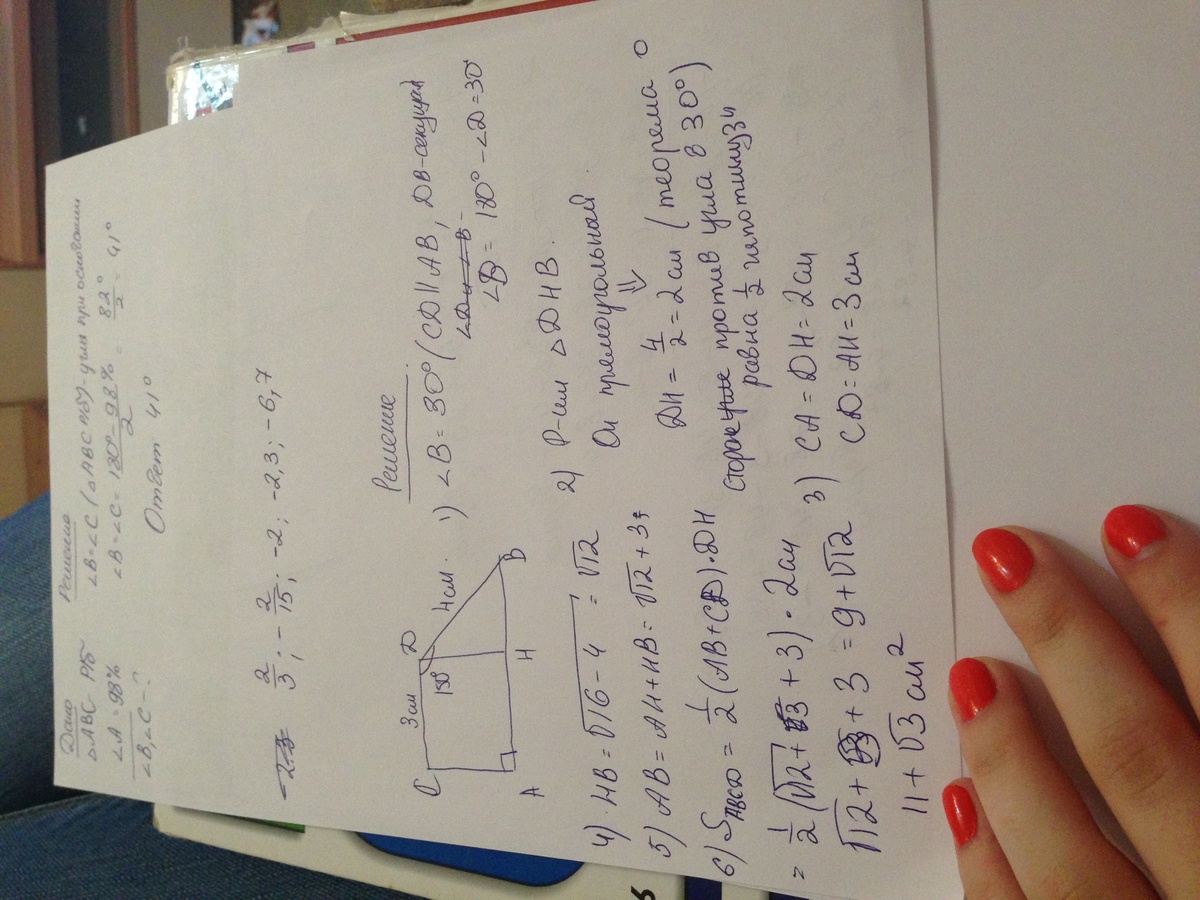 Дано
△ABC р/б
∠A = 98%
∠B, ∠C - ?
Решение
∠B = ∠C (△ABC р/б)-углы при основании
∠B = ∠C = 180° - 98% / 2 = 82° / 2 = 41°
Ответ 41°
2/3; - 2/15; -2; -2,3; -6,7
C 3см D
150° 4см
A H B
Решение
1) ∠B = 30° (CD || AB, DB-секущая
∠B = 180° - ∠D = 30°
2) Р-им △DHB.
Он прямоугольный
⇓
DH = 4/2 = 2см (теорема о
стороне против угла в 30°)
равна 1/2 гипотинузы
3) CA = DH = 2см
CD = AH = 3см
4) HB = √16 - 4 = √12
5) AB = AH + HB = √12 + 3
6) S ABCD = 1/2 (AB + CD) · DH
= 1/2 (√12 + 3 + 3) · 2см
√12 + 3 + 3 = 9 + √12
11 + √3 см²